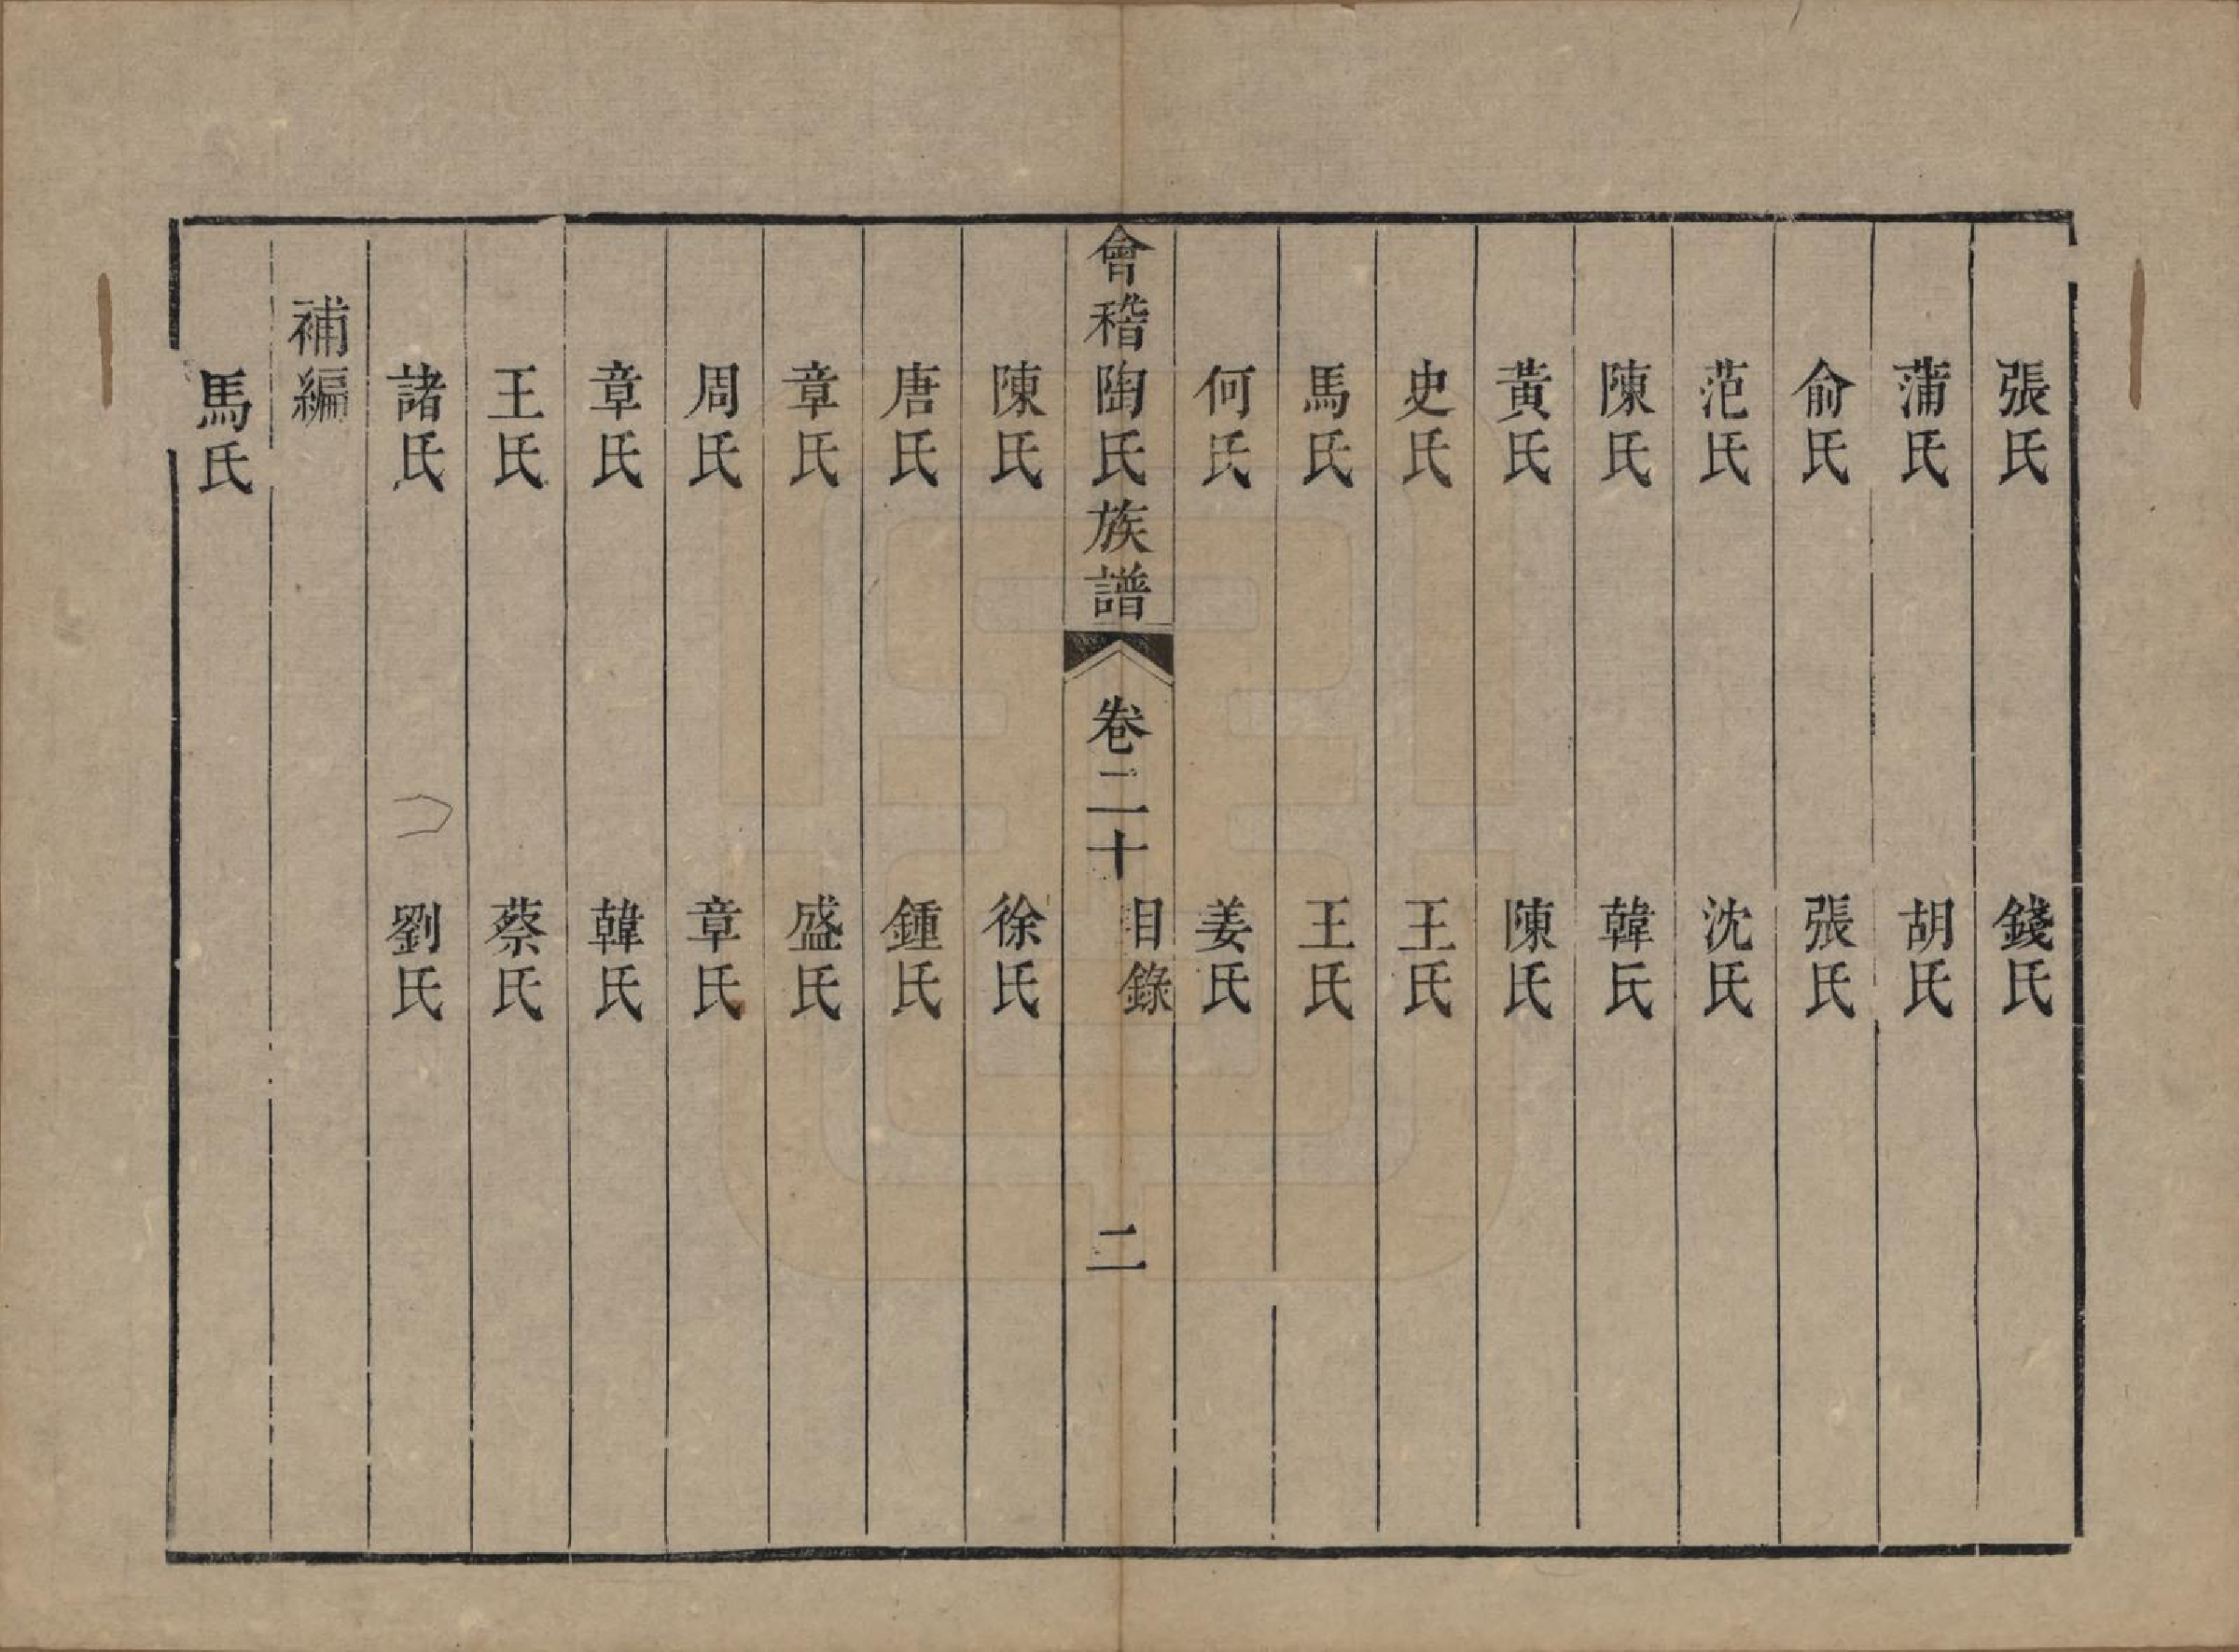 張氏　錢氏
蒲氏　胡氏
俞氏　張氏
范氏　沈氏
陳氏　韓氏
黃氏　陳氏
史氏　王氏
馬氏　王氏
何氏　姜氏
會稽陶氏族譜　卷二十　目錄　二
陳氏　徐氏
唐氏　鍾氏
章氏　盛氏
周氏　章氏
章氏　韓氏
王氏　蔡氏
諸氏　劉氏
補編
馬氏